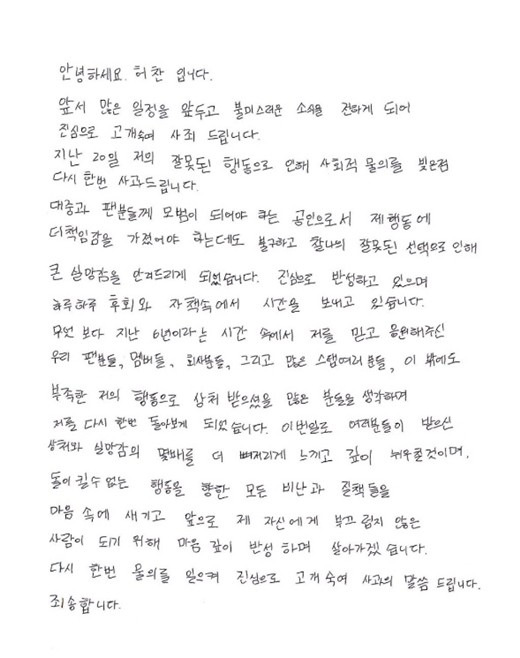 안녕하세요. 허 찬 입니다.
앞서 많은 일정을 앞두고 불미스러운 소식을 전하게 되어
진심으로 고개숙여 사죄 드립니다.
지난 20일 저의 잘못된 행동으로 인해 사회적 물의를 빚은점
다시 한번 사과드립니다.
대중과 팬분들께 모범이 되어야 하는 공인으로서 제행동에
더책임감을 가졌어야 하는데도 불구하고 찰나의 잘못된 선택으로 인해
큰 실망감을 안겨드리게 되었습니다. 진심으로 반성하고 있으며
하루하루 후회와 자책속에서 시간을 보내고 있습니다.
무엇 보다 지난 6년이라는 시간 속에서 저를 믿고 응원해주신
우리 팬분들, 멤버들, 회사분들, 그리고 많은 스탭여러분들, 이 밖에도
부족한 저의 행동으로 상처 받으셨을 많은 분들을 생각하며
저를 다시 한번 돌아보게 되었습니다. 이번일로 여러분들이 받으신
상처와 실망감의 몇배를 더 뼈저리게 느끼고 깊이 뉘우칠것이며,
돌이킬수 없는 행동을 향한 모든 비난과 질책들을
마음 속에 새기고 앞으로 제 자신에게 부끄럽지 않은
사람이 되기 위해 마음 깊이 반성 하며 살아가겠습니다.
다시 한번 물의를 일으켜 진심으로 고개 숙여 사과의 말씀 드립니다.
죄송합니다.